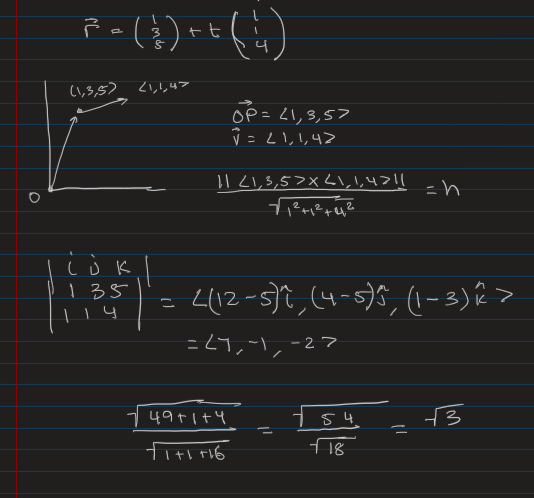 r⃗ = (1 3 5) + t (1 1 4)
(1,3,5) <1,1,4>
O
OP⃗ = <1,3,5>
v⃗ = <1,1,4>
|| <1,3,5> × <1,1,4> || / √1²+1²+4² = h
| i j k |
| 1 3 5 |
| 1 1 4 | = <(12-5)î, (4-5)ĵ, (1-3)k̂>
= <7, -1, -2>
√49+1+4 / √1+1+16 = √54 / √18 = √3